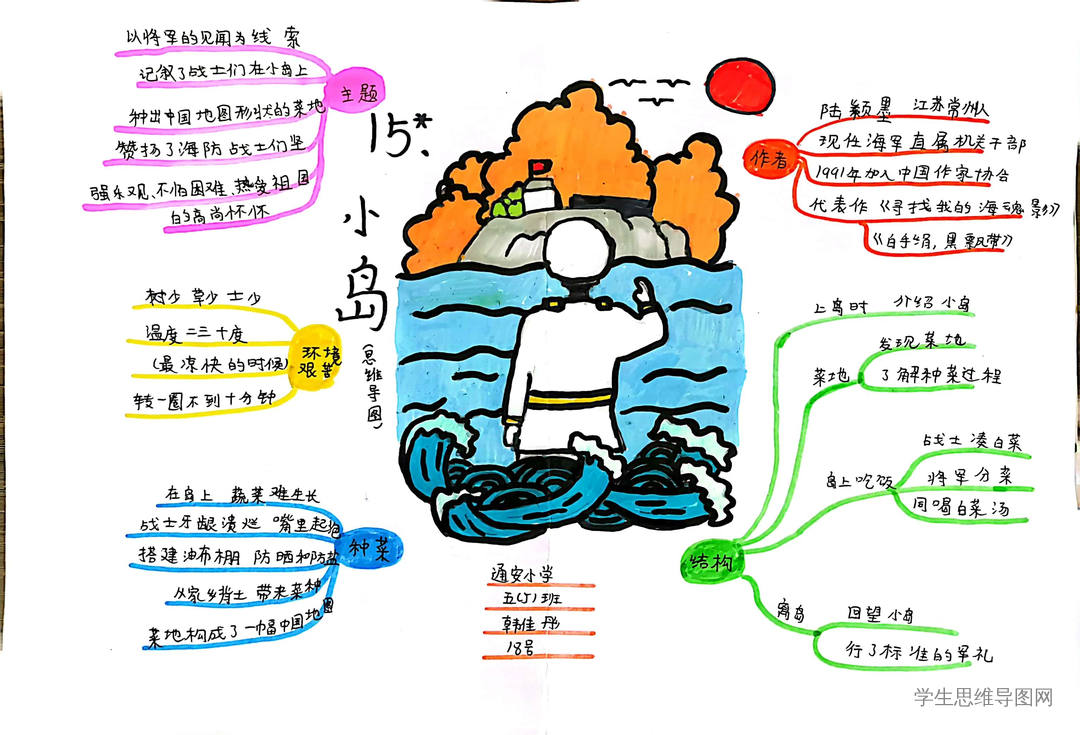 15*、
小岛
(思维导图)
主题
以将军的见闻为线索
记叙了战士们在小岛上
种出中国地图形状的菜地
赞扬了海防战士们坚
强乐观、不怕困难、热爱祖国
的高尚怀怀
环境
艰苦
树少 草少 土少
温度二三十度
(最凉快的时候)
转一圈不到十分钟
种菜
在岛上 蔬菜难生长
战士牙龈溃烂 嘴里起泡
搭建油布棚 防晒和防盐
从家乡背土 带来菜种
菜地构成了一幅中国地图
作者
陆颖墨 江苏常州人
现任海军直属机关干部
1991年加入中国作家协会
代表作《寻找我的海魂影》
《白手绢,黑飘带》
结构
上岛时 介绍小岛
菜地
发现菜地
了解种菜过程
岛上吃饭
战士凑白菜
将军分菜
同喝白菜汤
离岛
回望小岛
行了标准的军礼
通安小学
五(5)班
韩佳彤
18号
学生思维导图网